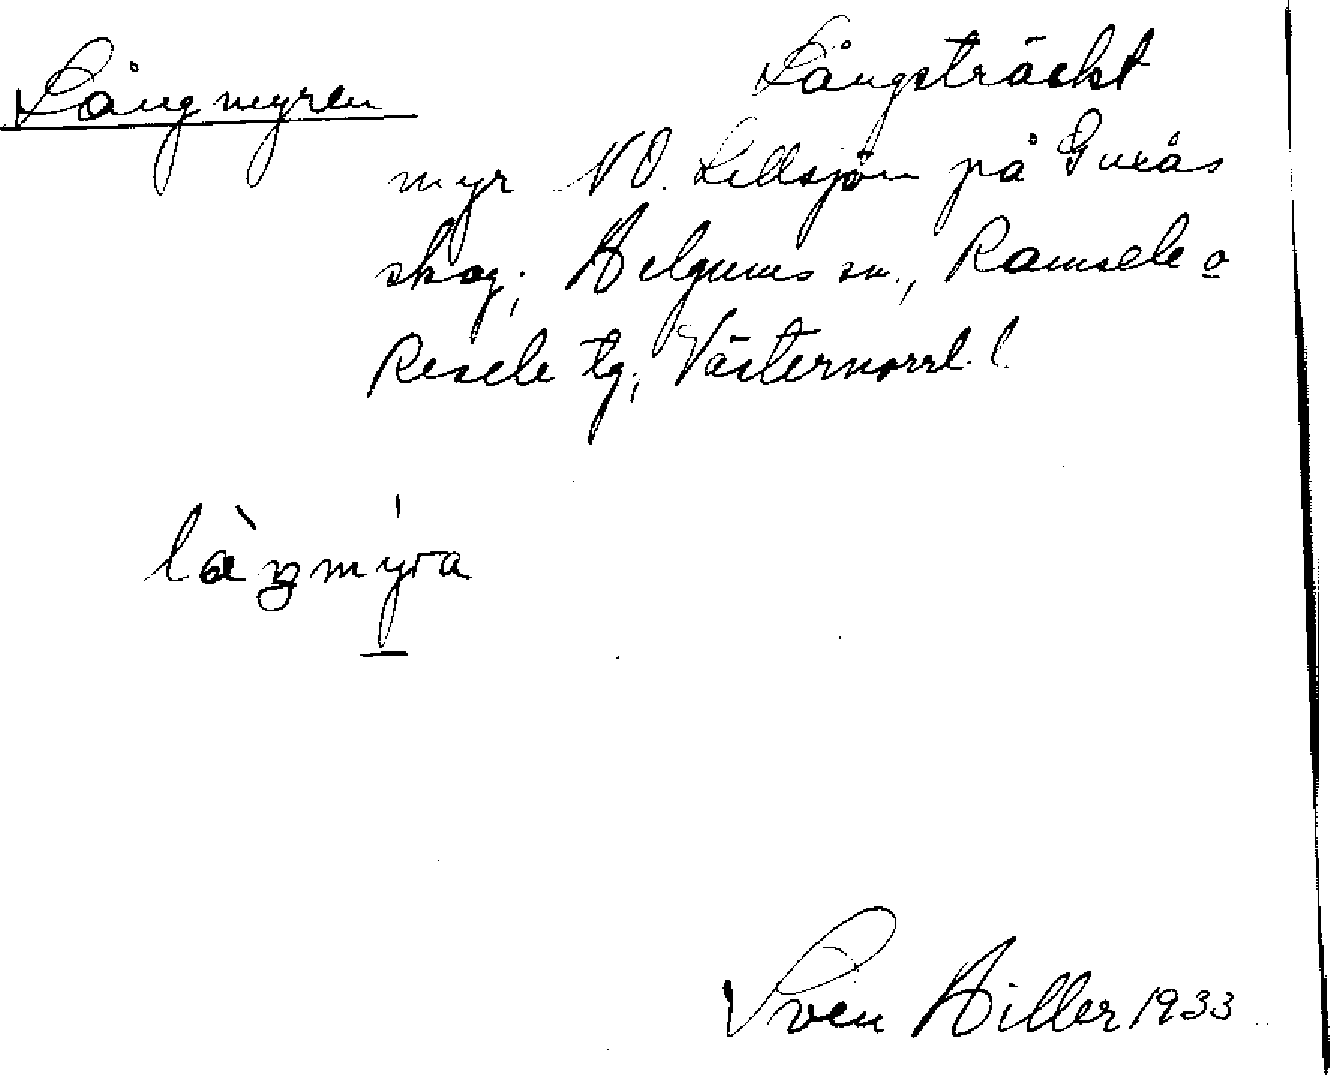 Långmyren
Långsträckt
myr NO. Lillsjön på Guxås
skog; Helgums sn., Ramsele o
Resele tg, Västernorrl. l
làŋmýra
Sven Hiller 1933